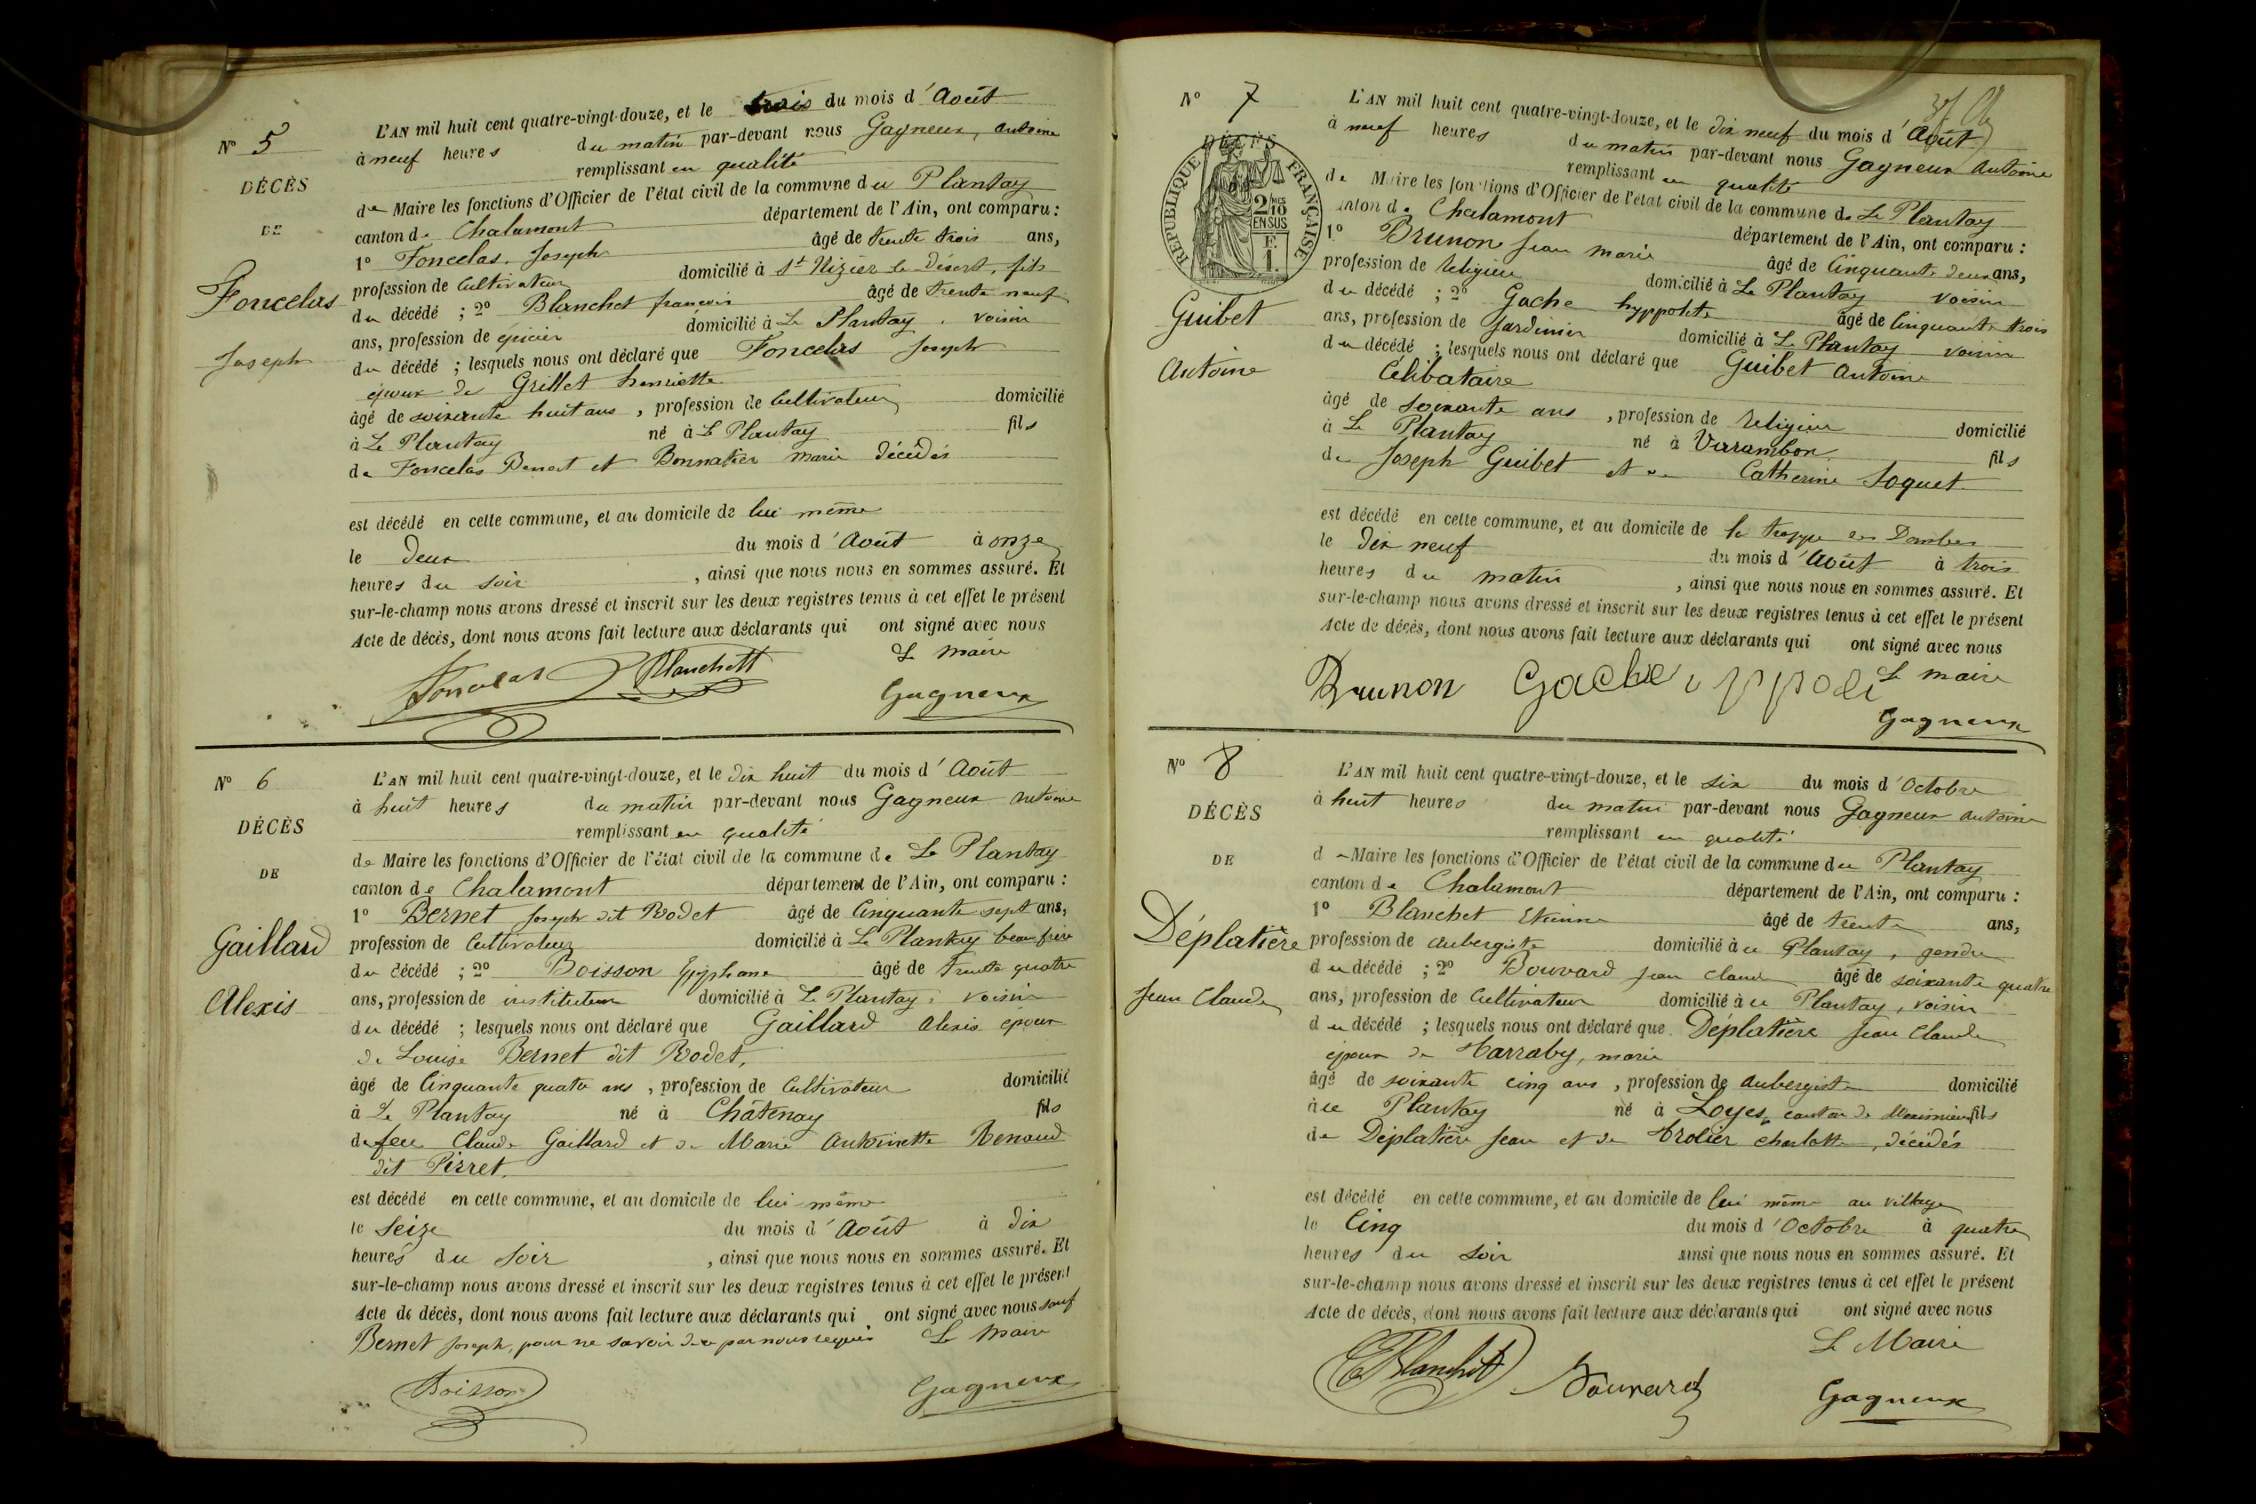 N° 5
DÉCÈS
DE
Foncelas
Joseph
L'AN mil huit cent quatre-vingt-douze, et le trois du mois d'Août
à neuf heures du matin par-devant nous Gagneux, Antoine
remplissant en qualité
de Maire les fonctions d'Officier de l'état civil de la commune du Plantay
canton de Chalamont département de l'Ain, ont comparu :
1° Foncelas Joseph âgé de trente trois ans,
profession de Cultivateur domicilié à St Nizier le Désert, fils
du décédé ; 2° Blanchet françois âgé de trente neuf
ans, profession de épicier domicilié à Le Plantay, voisin
du décédé ; lesquels nous ont déclaré que Foncelas Joseph
époux de Grillet henriette
âgé de soixante huit ans, profession de Cultivateur domicilié
à Le Plantay né à Le Plantay fils
de Foncelas Benoit et Bonnatier Marie décédés
est décédé en cette commune, et au domicile de lui même
le deux du mois d'Août à onze
heures du soir, ainsi que nous nous en sommes assuré. Et
sur-le-champ nous avons dressé et inscrit sur les deux registres tenus à cet effet le présent
Acte de décès, dont nous avons fait lecture aux déclarants qui ont signé avec nous
Le maire
Foncelas Blanchett Gagneux
N° 6
DÉCÈS
DE
Gaillard
Alexis
L'AN mil huit cent quatre-vingt-douze, et le dix huit du mois d'Août
à huit heures du matin par-devant nous Gagneux Antoine
remplissant en qualité
de Maire les fonctions d'Officier de l'état civil de la commune de Le Plantay
canton de Chalamont département de l'Ain, ont comparu :
1° Bernet Joseph dit Rodet âgé de Cinquante sept ans,
profession de Cultivateur domicilié à Le Plantay beau frère
du décédé ; 2° Boisson Epiphane âgé de trente quatre
ans, profession de instituteur domicilié à Le Plantay, voisin
du décédé ; lesquels nous ont déclaré que Gaillard Alexis époux
de Louise Bernet dit Rodet,
âgé de Cinquante quatre ans, profession de Cultivateur domicilié
à Le Plantay né à Châtenay fils
de feu Claude Gaillard et de Marie Antoinette Renaud
dit Pierret.
est décédé en cette commune, et au domicile de lui même
le Seize du mois d'Août à dix
heures du Soir, ainsi que nous nous en sommes assuré. Et
sur-le-champ nous avons dressé et inscrit sur les deux registres tenus à cet effet le présent
Acte de décès, dont nous avons fait lecture aux déclarants qui ont signé avec nous sauf
Bernet Joseph, pour ne savoir de ce par nous requis Le Maire
Boisson Gagneux
N° 7
DÉCÈS
RÉPUBLIQUE FRANÇAISE
2/10 EN SUS
F. 1.
Guibet
Antoine
L'AN mil huit cent quatre-vingt-douze, et le dix neuf du mois d'Août
à neuf heures du matin par-devant nous Gagneux Antoine
remplissant en qualité
de Maire les fonctions d'Officier de l'état civil de la commune de Le Plantay
canton de Chalamont département de l'Ain, ont comparu :
1° Brunon Jean Marie âgé de Cinquante deux ans,
profession de religieux domicilié à Le Plantay voisin
du décédé ; 2° Gache hyppolite âgé de Cinquante trois
ans, profession de Jardinier domicilié à Le Plantay voisin
du décédé ; lesquels nous ont déclaré que Guibet Antoine
Célibataire
âgé de soixante ans, profession de religieux domicilié
à Le Plantay né à Varambon fils
de Joseph Guibet et de Catherine Soquet
est décédé en cette commune, et au domicile de la trappe des Dombes
le dix neuf du mois d'Août à trois
heures du matin, ainsi que nous nous en sommes assuré. Et
sur-le-champ nous avons dressé et inscrit sur les deux registres tenus à cet effet le présent
Acte de décès, dont nous avons fait lecture aux déclarants qui ont signé avec nous
Le maire
Brunon Gache Gagneux
N° 8
DÉCÈS
DE
Déplatière
Jean Claude
L'AN mil huit cent quatre-vingt-douze, et le six du mois d'Octobre
à huit heures du matin par-devant nous Gagneux Antoine
remplissant en qualité
de Maire les fonctions d'Officier de l'état civil de la commune du Plantay
canton de Chalamont département de l'Ain, ont comparu :
1° Blanchet Etienne âgé de trente ans,
profession de aubergiste domicilié à ce Plantay, gendre
du décédé ; 2° Bouvard Jean Claude âgé de soixante quatre
ans, profession de Cultivateur domicilié à ce Plantay, voisin
du décédé ; lesquels nous ont déclaré que Déplatière Jean Claude
époux de Harraby, marie
âgé de soixante cinq ans, profession de aubergiste domicilié
à ce Plantay né à Loyes, canton de Meximieux fils
de Déplatière Jean et de Trolier Charlotte, décédés
est décédé en cette commune, et au domicile de lui même au village
le Cinq du mois d'Octobre à quatre
heures du soir ainsi que nous nous en sommes assuré. Et
sur-le-champ nous avons dressé et inscrit sur les deux registres tenus à cet effet le présent
Acte de décès, dont nous avons fait lecture aux déclarants qui ont signé avec nous
Le Maire
E Blanchett Bouvard Gagneux